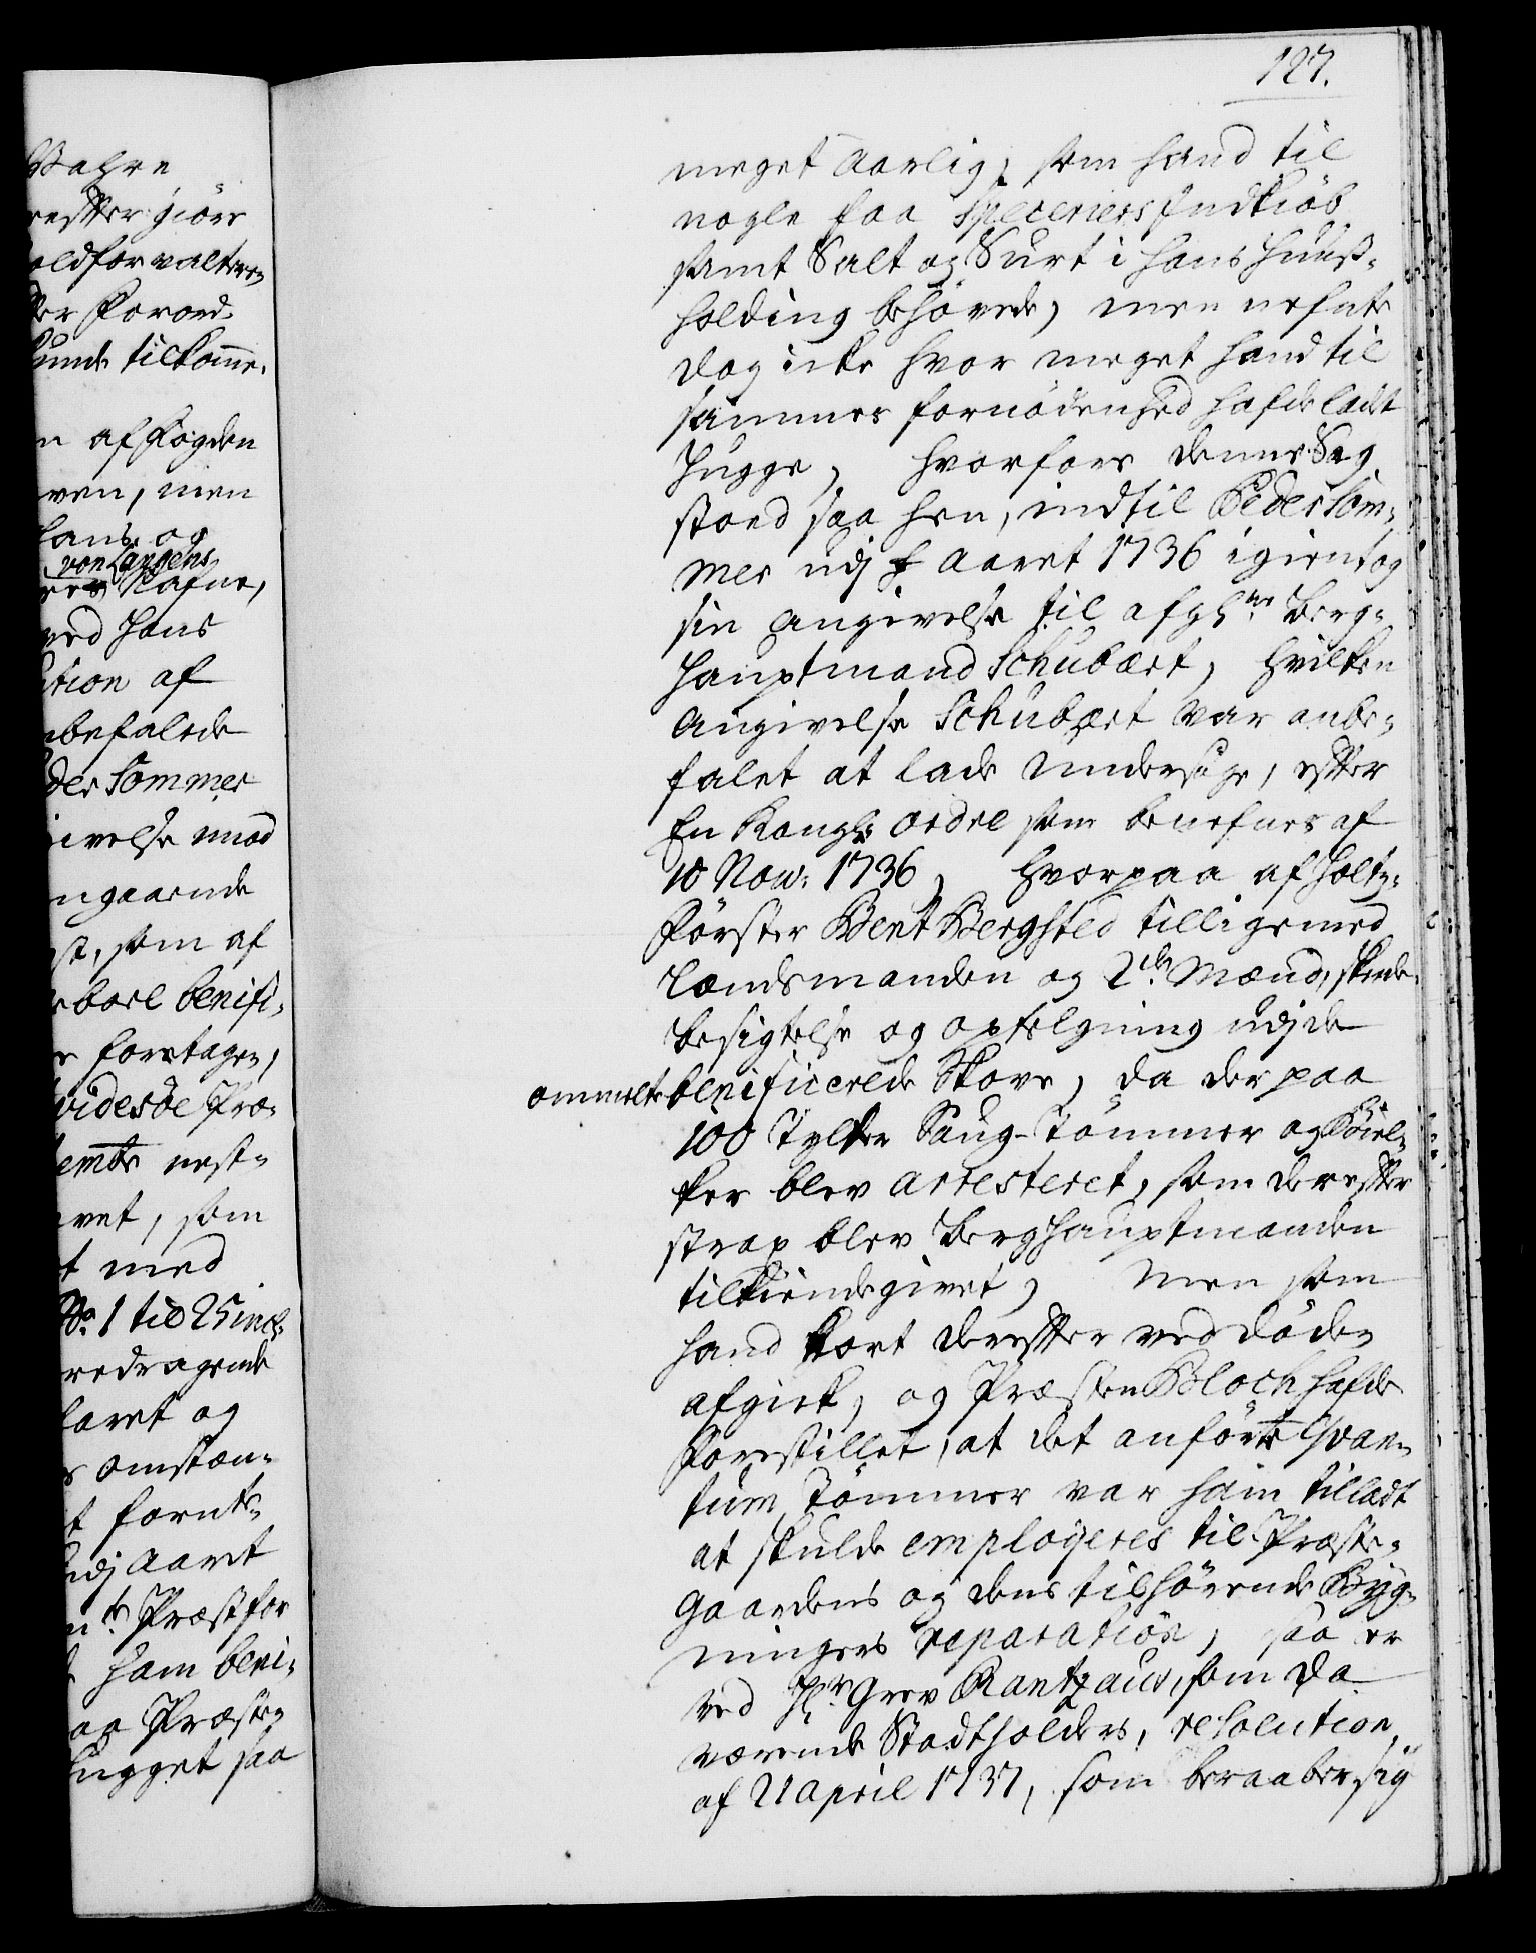 127.
meget Aarlig, som hand til
nogle faa Speceriers Indkiöb
samt Salt og Surt i hans Huus-
holding behövede, men nefnte
dog icke hvor meget hand til
sammes fornödenhed hafde ladt
Hugge, hvorfore denne Sag
stoed saa hen, indtil Peder Som-
mer udj Aaret 1736 igientog
sin Angivelse til afgl:ne Berg-
Hauptmand Schubart, hvilken
Angivelse Schubart var anbe-
falet at lade Undersöge, efter
En Kongl: ordre som benefnes af
10 Nov: 1736, hvorpaa af Holtz-
Förster Bent Bergsted tilligemed
Landsmanden og 2de Mænd, skeede
besigtelse og optelgning udj de
ommelte benificerede Skove, da der paa
100 Tylter Saug-Tömmer og Kiel-
ker blev arresteret, som derefter
strax blev Berghauptmanden
tilkiendegivet, Men som
hand kort derefter ved döden
afgick, og Præsten Bloch hafde
Forestillet, at det anförte Qvan-
tum Tömmer var ham tilladt
at skulde employeres til Præste-
Gaardens og dens tilhörende Byg-
ningers reparation, saa er
ved Hr Grev Rantzaus, som da
værende Stadtholders, resolution
af 21 april 1737, som beraaber sig
Bahre
refter giörs
oldforvalteren
ter Forord-
kunde tilkomme.
n af Fogden
ven, men
hans og
von Langens
Nafne,
ved hans
ution af
nbefalede
der Sommer
ivelse mod
ngaaende
st, som af
bare benifi-
r foretagen,
videsöe Præ-
emte nest-
vet, som
t med
No. 1 til 25 incl:
redragende
laret og
s omstæn-
t fornte-
udj Aaret
n:te Præst for
ham beni-
aa Præste-
hugget saa